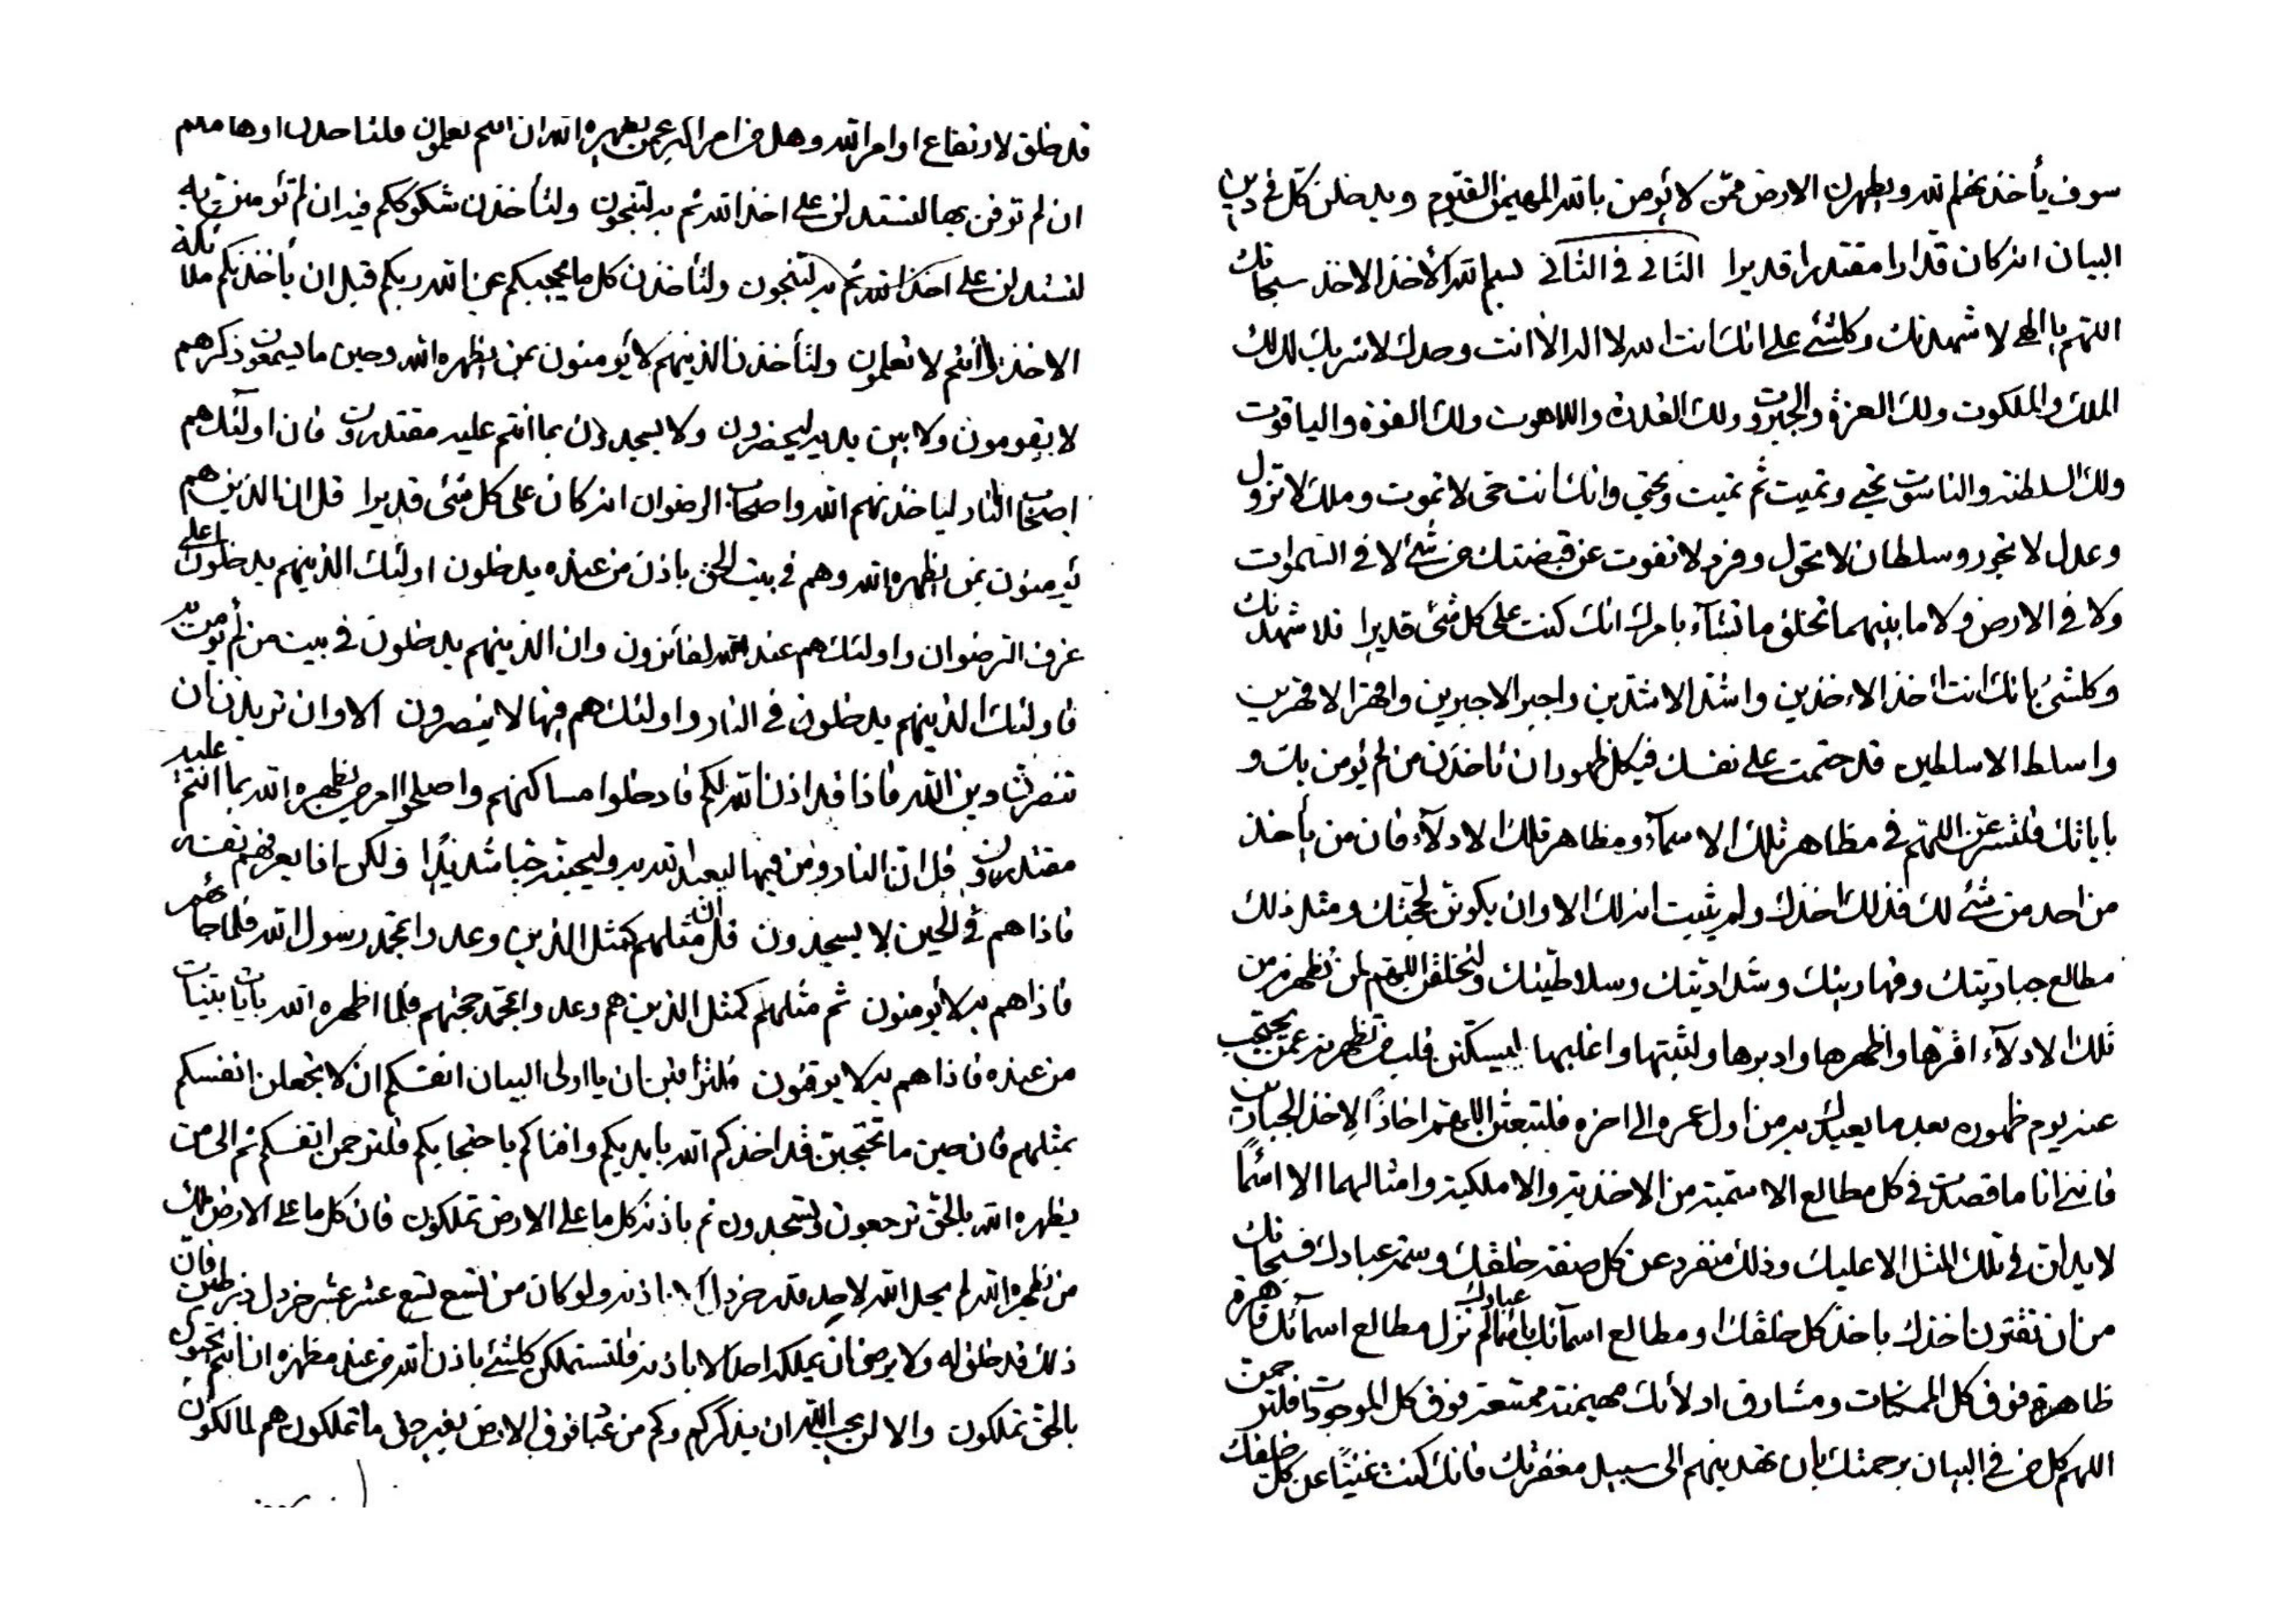 سوف يأخذنهم لله و يطهرن الارض ممن لا يؤمن بالله المهيمن القيوم و يدخلن كل في دين
البيان انه كان قدارا مقتدرا قديرا الثاني في الثاني بسم الله الأخذ الاخذ سبحانك
اللهم يا الهي لاشهدنك و كلشئ على انك انت الله لا اله الا انت وحدك لا شريك لك لك
الملك و الملكوت ولك العزة والجبروت ولك القدرة واللاهوت ولك القوة والياقوت
ولك السلطنة والناسوت تحيي و تميت ثم تميت و تحيي وانك انت حي لا تموت و ملك لا تزول
و عدل لا تجور و سلطان لا تحول و فرد لا تفوت عن قبضتك من شئ لا في السموات
ولا في الارض ولا ما بينهما تخلق ما تشآء بامرك انك كنت على كل شئ قديرا فلاشهدنك
و كلشئ بانك انت اخذ الاءخذين واشد الاشدين واجبر الاجبرين واقهر الاقهرين
واسلط الاسلطين قد حتمت على نفسك في كل ظهور ان تأخذن من لم يؤمن بك و
باياتك فلتسرعن اللهم في مظاهر تلك الاسمآء ومظاهر تلك الادلآء فان من يأخذ
من احد من شئ لك فذلك اخذك ولم يثبت انه لك الا وان يكونن لحجتك و مثل ذلك
مطالع جباريتك وقهاريتك و شداديتك وسلاطيتك ولتخلقن اللهم لمن تظهرنه من
تلك الادلآء اقهرها واظهرها وادبرها ولثبتها واغلبها ليسكنن قلب من تظهرنه عمن يحتجب
عنه يوم ظهوره بعد ما يعبدك به من اول عمره الى اخره فلتبعثن اللهم اخاذا لاخذ الجبارين
فانني انا ما قصدت في كل مطالع الاسمية من الاخذية والاملكية وامثالهما الا اسما
لا يدلن في تلك المثل الا عليك وذلك منفرد عن كل صنفه خلقك وسمة عبادك فسبحانك
من ان تقترن اخذك باخذ كل خلقك او مطالع اسمآئك باسمآء عبادك لم تزل مطالع اسمآئك قاهرة
ظاهرة فوق كل الممكنات و مشارق ادلائك مهيمنة ممتنعة فوق كل الموجودات فلترحمن
اللهم كل من في البيان برحمتك بان تهدينهم الى سبيل مغفرتك فانك كنت غنيا عن كل خلقك
قد خلق لارتفاع اوامر الله وهل من امر اكبر عمن يظهره الله ان انتم تعلمون فلتأخذن اوهامكم
ان لم توقن بها لتستدلن على اخذ الله ثم به لتنجون ولتأخذن شكوككم فيه ان لم تؤمنن به
لتستدلن على اخذ الله ثم به لتنجون ولتأخذن كل ما يحجبكم عن الله ربكم قبل ان يأخذنكم ملائكة
الاخذ وانتم لا تعلمون ولتأخذن الذينهم لا يؤمنون بمن يظهره الله وحين ما يسمعون ذكرهم
لا يقومون ولا بين يديه ليحضرون ولا يسجدون بما انتم عليه مقتدرون فان اولئك هم
اصحاب النار ليأخذنهم الله واصحاب الرضوان انه كان على كل شئ قديرا قل ان الذين هم
يؤمنون بمن يظهره الله وهم في بيت الحق باذن من عنده يدخلون اولئك الذينهم يدخلون اعلى
غرف الرضوان واولئك هم عند الله لفائزون وان الذينهم يدخلون في بيت من لم يؤمن به
فاولئك الذينهم يدخلون في النار واولئك هم فيها لا ينصرون الا وان تريدن ان
تنصرن دين الله فاذا قد اذن الله لكم فادخلوا مساكنهم واصلحوا امر من يظهره الله بما انتم عليه
مقتدرون قل ان النار ومن فيها ليعبد الله به وليحبنه حبا شديدا ولكن اذا يعرفهم نفسه
فاذا هم في الحين لا يسجدون قل ان مثلهم كمثل الذين وعدوا بمحمد رسول الله فلما جائهم
فاذا هم به لا يؤمنون ثم مثلهم كمثل الذين هم وعدوا بمحمد حجتهم فلما اظهره الله بايات بينات
من عنده فاذا هم به لا يوقنون فلتراقبن ان يا اولى البيان انفسكم ان لا تجعلن انفسكم
بمثلهم فان حين ما تحتجبن قد اخذكم الله بايديكم وافناكم باحتجابكم فلترحمن انفسكم ثم الى من
يظهره الله بالحق ترجعون وتسجدون ثم باذنه كل ما على الارض تملكون فان كل ما على الارض ملك
من يظهره الله لم يحل الله لاحد قدر خردل الا باذنه ولو كان من تسع تسع عشر عشر خردل من طين فان
ذلك قد خلق له ولا يرضى ان يملكه احد الا باذنه فلتستملكن كلشئ باذن الله من عند مظهره ان انتم تحبون
بالحق تملكون والا لن يحب الله ان يذكركم وكم من عباد فوق الارض بغير حق ما تملكون هم لمالكون